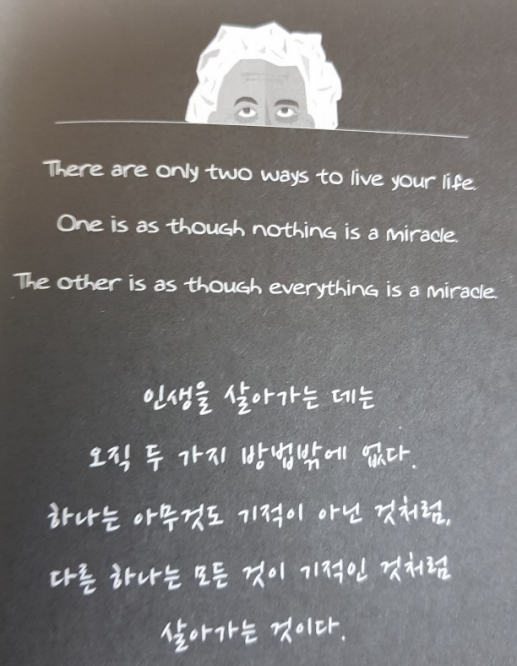 There are only two ways to live your life.
One is as though nothing is a miracle.
The other is as though everything is a miracle.
인생을 살아가는 데는
오직 두 가지 방법밖에 없다.
하나는 아무것도 기적이 아닌 것처럼,
다른 하나는 모든 것이 기적인 것처럼
살아가는 것이다.